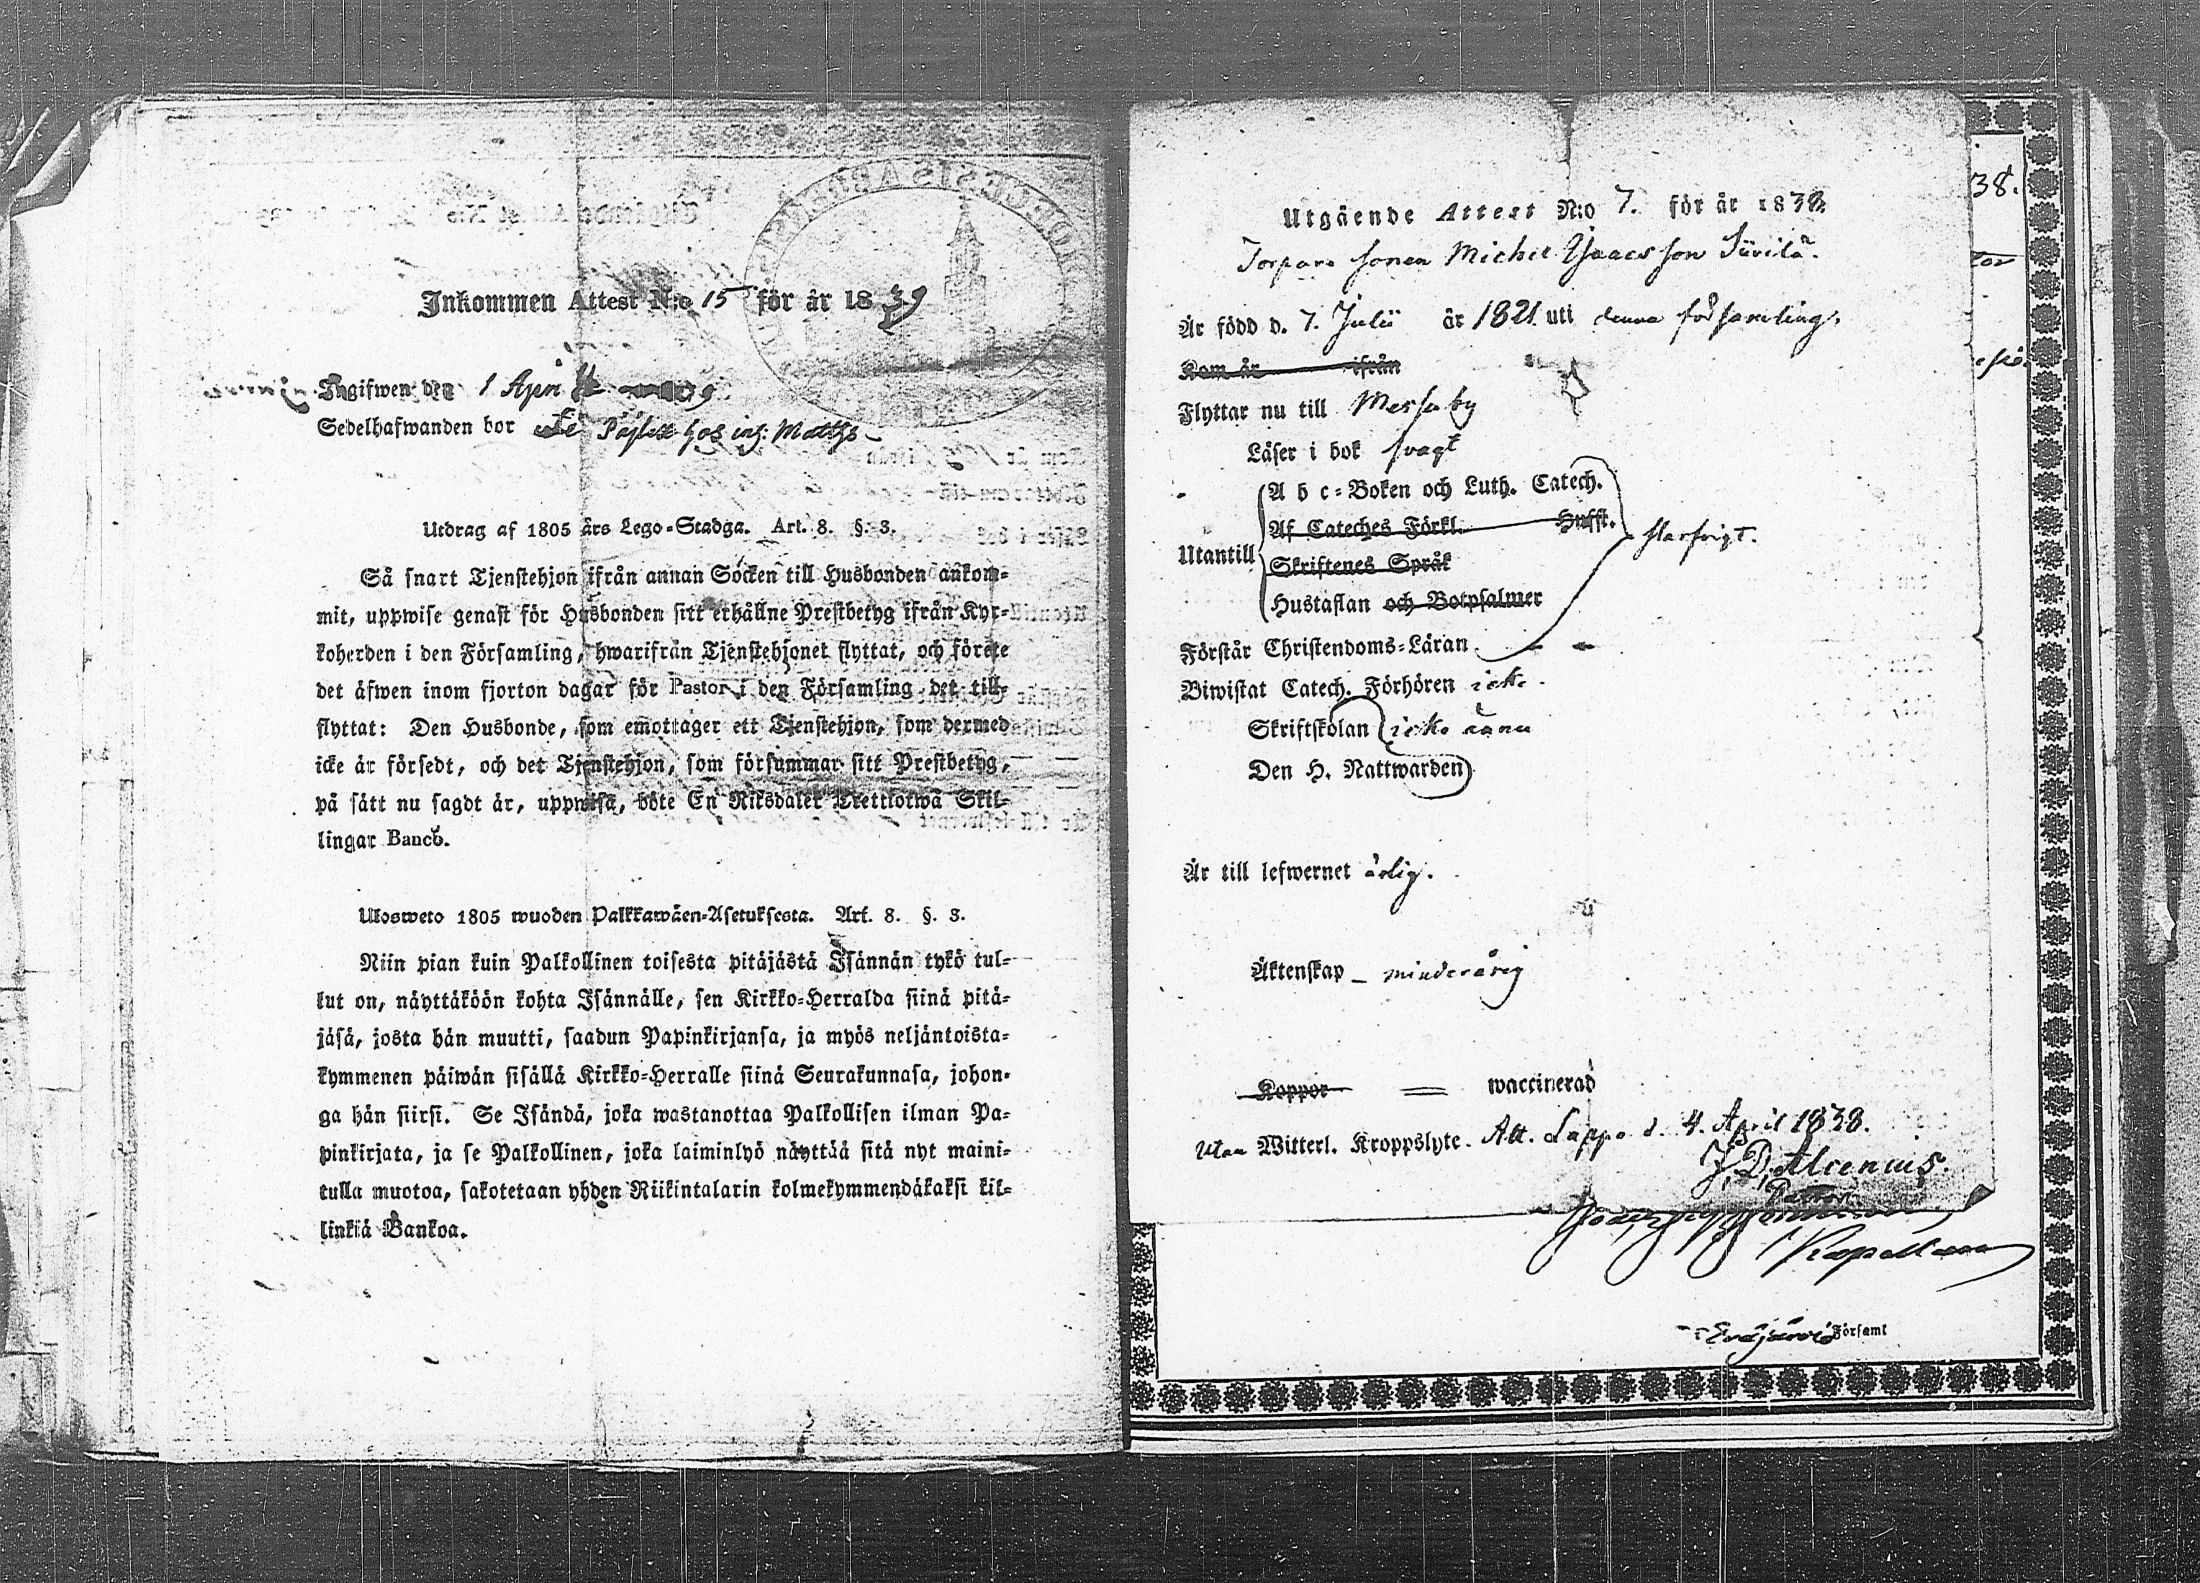 Inkommen Attest N:o 15 för år 1839
Ingifwen den 1 April
Sedelhafwanden bor
Utdrag af 1805 års Lego-Stadga. Art. 8. §. 3.
Så snart Tjenstehjon ifrån annan Socken till Husbonden ankom-
mit, uppwise genast för Husbonden sitt erhållne Prestbetyg ifrån Kyr-
koherden i den Församling, hwarifrån Tjenstehjonet flyttat, och förete
det äfwen inom fjorton dagar för Pastor i den Församling det till-
flyttat: Den Husbonde, som emottager ett Tjenstehjon, som dermed
icke är försedt, och det Tjenstehjon, som försummar sitt Prestbetyg,
på sätt nu sagdt är, uppwisa, böte En Riksdaler Trettiotwå Skil-
lingar Banco.
Ulosweto 1805 wuoden Palkkawäen-Asetuksesta. Art. 8. §. 3.
Niin pian kuin Palkollinen toisesta pitäjästä Isännän tykö tul-
lut on, näyttäköön kohta Isännälle, sen Kirkko-Herralda siinä pitä-
jäsä, josta hän muutti, saadun Papinkirjansa, ja myös neljäntoista-
kymmenen päiwän sisällä Kirkko-Herralle siinä Seurakunnasa, johon-
ga hän siirsi. Se Isändä, joka wastanottaa Palkollisen ilman Pa-
pinkirjata, ja se Palkollinen, joka laiminlyö näyttää sitä nyt maini-
tulla muotoa, sakotetaan yhden Riikintalarin kolmekymmendäkaksi kil-
linkiä Bankoa.
Utgående Attest N:o 7. för år 1838.
Torpare sonen Michel Isaacsson
Är född d. 7. Julii år 1821 uti denna församling.
Kom år ifrån
Flyttar nu till Messuby
Läser i bok svagt
A b c-Boken och Luth. Catech.
Af Cateches Förkl. Hufst.
Utantill
Skriftenes Språk
Hustaflan och Botpsalmer
Förstår Christendoms-Läran
Biwistat Catech. Förhören icke.
Skriftskolan icke ännu
Den H. Nattwarden
Är till lefwernet ärlig.
Äktenskap – minderårig
Koppor waccinerad
utan Witterl. Kroppslyte. Att. Lappo d. 4. April 1838.
J. D. Alcenius.
Pastor
Kapellan
i Eräjärvi Församl
38.